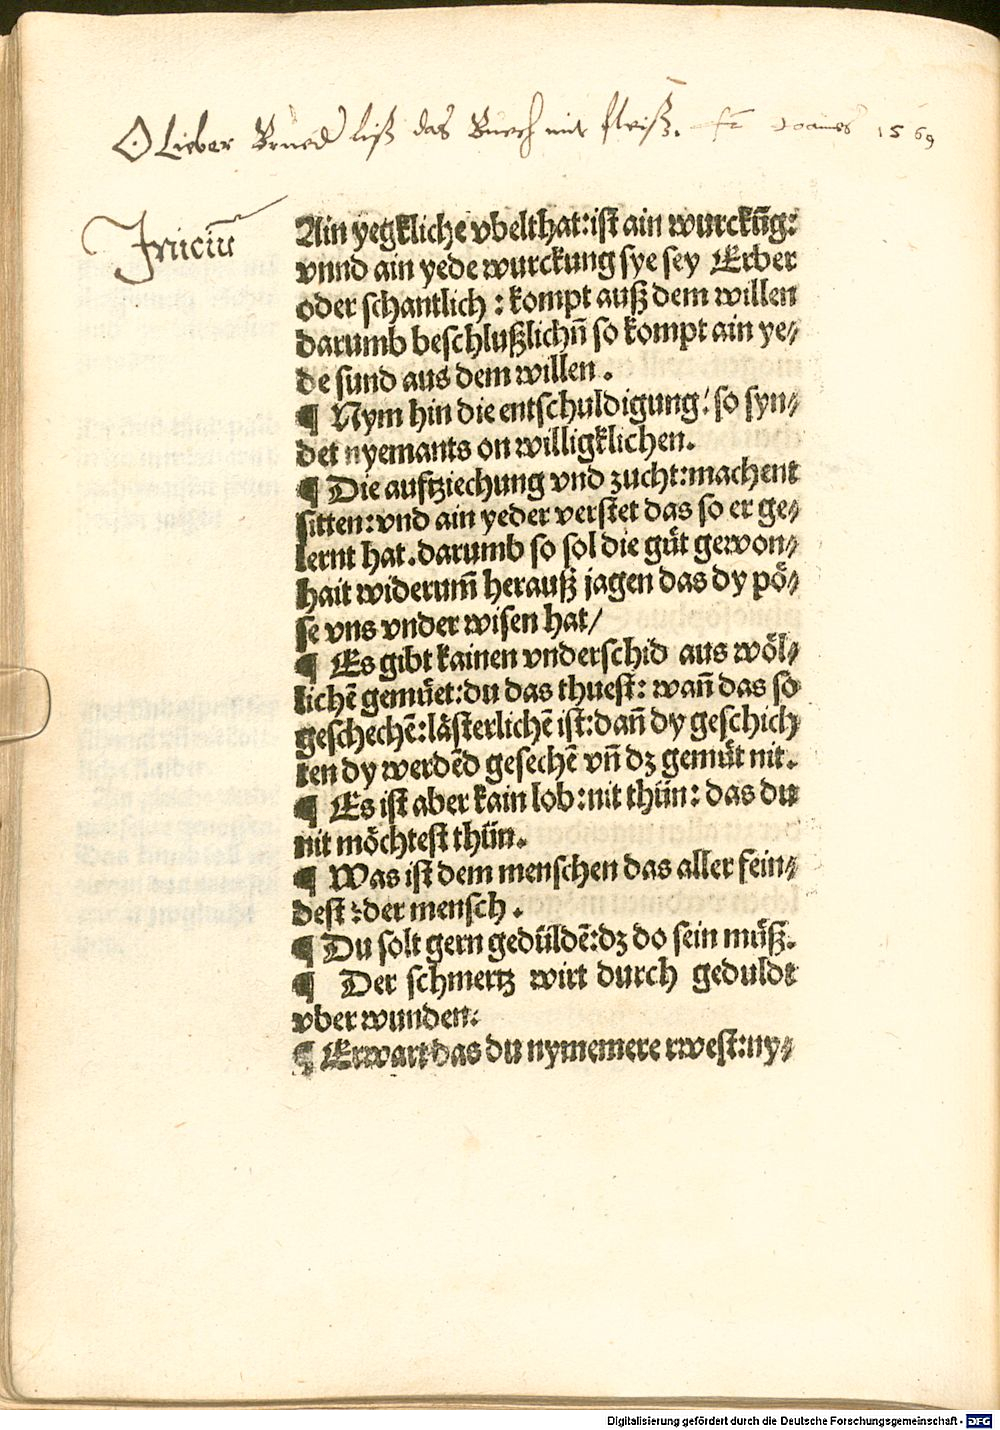 O Lieber Brued liß das Buech mit fleiß. fr Joannes 1569
Iniciū
Ain yegkliche vbelthat:ist ain wurckūg:
vnnd ain yede wurckung sye sey Erber
oder schantlich : kompt auß dem willen
darumb beschlußlichñ so kompt ain ye⸗
de sund aus dem willen .
¶ Nym hin die entschuldigung: so syn⸗
det nyemants on willigklichen.
¶ Die auftziechung vnd zucht:machent
sitten:vnd ain yeder verstet das so er ge⸗
lernt hat.darumb so sol die gůt gewon⸗
hait widerum̄ herauß jagen das dy pö⸗
se vns vnder wisen hat/
¶ Es gibt kainen vnderschid aus wöl⸗
lichē gemüet:du das thuest: wañ das so
geschechē:lästerlichē ist:dañ dy geschich
ten dy werdēd gesechē vñ dz gemüt nit.
¶ Es ist aber kain lob:nit thůn: das du
nit möchtest thůn.
¶ Was ist dem menschen das aller fein⸗
dest :der mensch .
¶ Du solt gern gedüldē:dz do sein můß.
¶ Der schmertz wirt durch geduldt
vber wunden:
¶ Erwart das du nymemere rwest:ny⸗
Digitalisierung gefördert durch die Deutsche Forschungsgemeinschaft - DFG